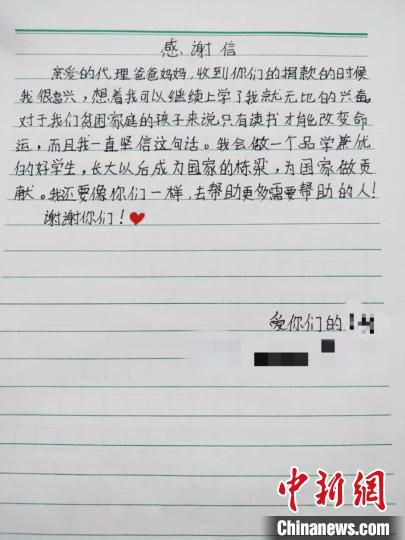 感谢信
亲爱的代理爸爸妈妈,收到你们的捐款的时候
我很高兴,想着我可以继续上学了我就无比的兴奋。
对于我们贫困家庭的孩子来说只有读书才能改变命
运,而且我一直坚信这句话。我会做一个品学兼优
的好学生,长大以后成为国家的栋梁,为国家做贡
献。我还要像你们一样,去帮助更多需要帮助的人!
谢谢你们!❤
爱你们的
中新网
Chinanews.com